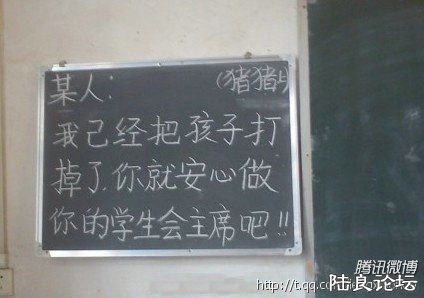 某人： (猪猪
我已经把孩子打
掉了,你就安心做
你的学生会主席吧!!
腾讯微博
http://t.qq.co
陆良论坛